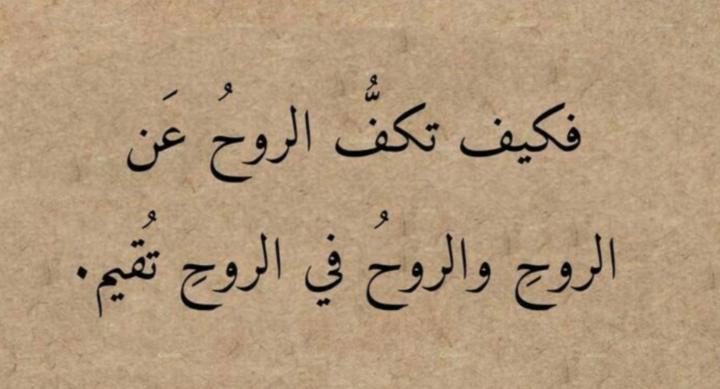 فكيف تكفُّ الروحُ عَن
الروحِ والروحُ في الروحِ تُقيم.